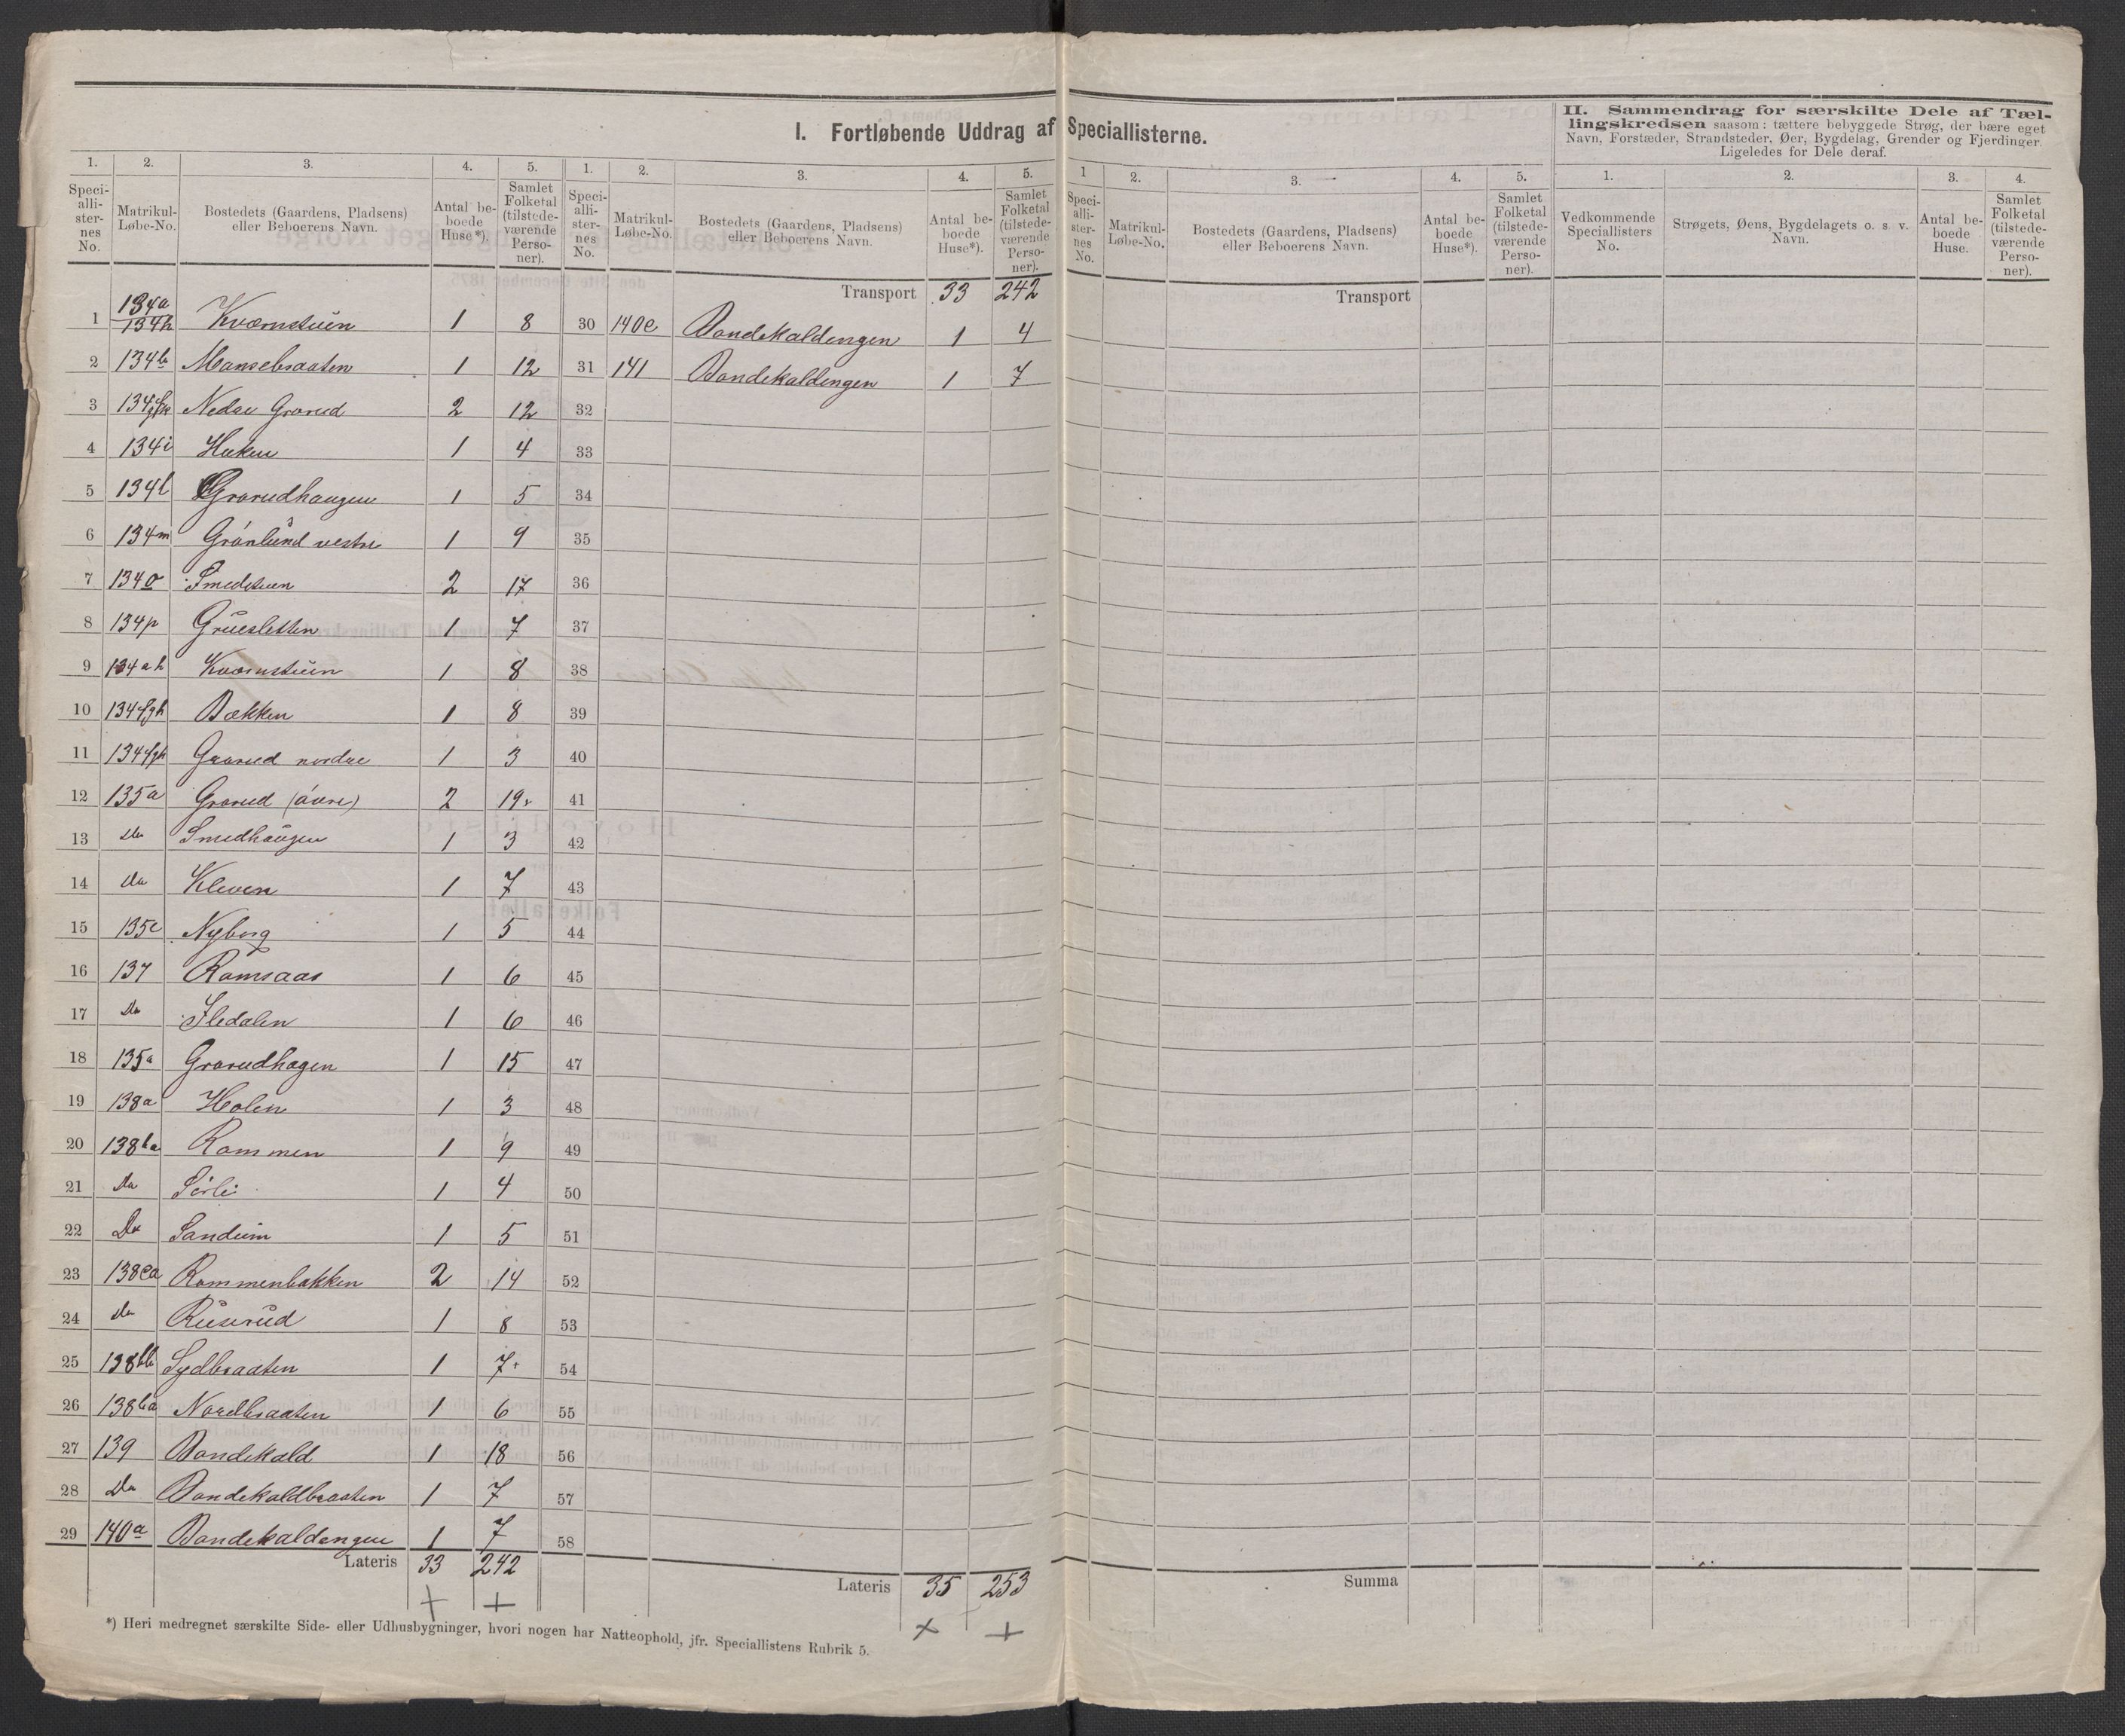 I. Fortløbende Uddrag af Speciallisterne.
II. Sammendrag for særskilte Dele af Tæl-
lingskredsen saasom: tættere bebyggede Strøg, der bære eget
Navn, Forstæder, Strandsteder, Øer, Bygdelag, Grender og Fjerdinger.
Ligeledes for Dele deraf.
1. 2. 3. 4. 5. 1. 2. 3. 4. 5. 1 2. 3. 4. 5. 1. 2. 3. 4.
Speci-alli-ster-nes No. Matrikul-Løbe-No. Bostedets (Gaardens, Pladsens) eller Beboerens Navn. Antal be-boede Huse*). Samlet Folketal (tilstede-værende Perso-ner).
Speci-alli-ster-nes No. Matrikul-Løbe-No. Bostedets (Gaardens, Pladsens) eller Beboerens Navn. Antal be-boede Huse*). Samlet Folketal (tilstede-værende Perso-ner).
Speci-alli-ster-nes No. Matrikul-Løbe-No. Bostedets (Gaardens, Pladsens) eller Beboerens Navn. Antal be-boede Huse*). Samlet Folketal (tilstede-værende Perso-ner).
Vedkommende Speciallisters No. Strøgets, Øens, Bygdelagets o. s. v. Navn. Antal be-boede Huse. Samlet Folketal (tilstede-værende Perso-ner).
Transport 33 242
Transport
1 134a 134h Kværnstuen 1 8
30 140c Bondekaldengen 1 4
2 134b Manselbraaten 1 12
31 141 Bondekaldengen 1 7
3 134fgh Nedre Grorud 2 12
32
4 134i Huken 1 4
33
5 134l Grorudhaugen 1 5
34
6 134m Grónlund vestre 1 9
35
7 134o Smedstuen 2 17
36
8 134p Gruesletten 1 7
37
9 134ah Kværnstuen 1 8
38
10 134fgh Bækken 1 8
39
11 134fgh Grorud nordre 1 3
40
12 135a Grorud (óvre) 2 19
41
13 Do Smedhaugen 1 3
42
14 Do Kleven 1 7
43
15 135c Nyborg 1 5
44
16 137 Romsaas 1 6
45
17 Do Sledalen 1 6
46
18 135a Grorudhagen 1 15
47
19 138a Holen 1 3
48
20 138ba Rommen 1 9
49
21 Do Sórli 1 4
50
22 Do Sandum 1 5
51
23 138ca Rommenbakken 2 14
52
24 Do Rusrud 1 8
53
25 138bb Sydbraaten 1 7
54
26 138ba Nordbraaten 1 6
55
27 139 Bondekald 1 18
56
28 Do Bondekaldbraaten 1 7
57
29 140a Bondekaldengen 1 7
58
Lateris 33 242
Lateris 35 253
Summa
*) Heri medregnet særskilte Side- eller Udhusbygninger, hvori nogen har Natteophold, jfr. Speciallistens Rubrik 5.